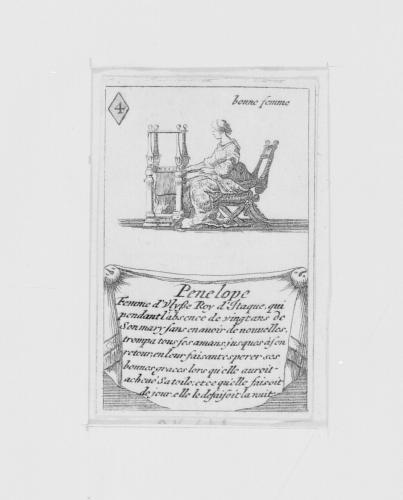 4
bonne femme
Penelope
Femme d'Vlysse Roy d'Itaque, qui
pendant l'absence de vingt ans de
Son mary sans en auoir de nouuelles,
trompa tous ses amans, jusques à son
retour, en leur faisant esperer ses
bonnes graces lors qu'elle auroit
acheué Sa toile, et ce qu'elle faisoit
de jour, elle le defaisoit la nuit